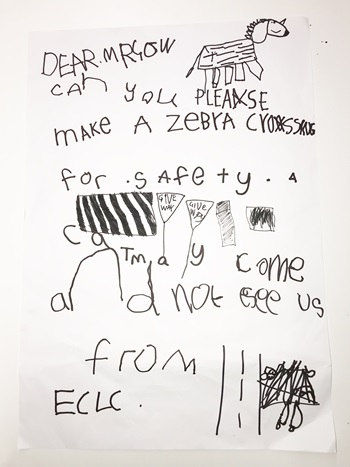 DEAR.MRGOW
can you PLEASE
make A zebra CROSSING
for .sAfety. A
GIVE WAY GIVE WAY
CaTmay come
and not see us
from
ECLC.